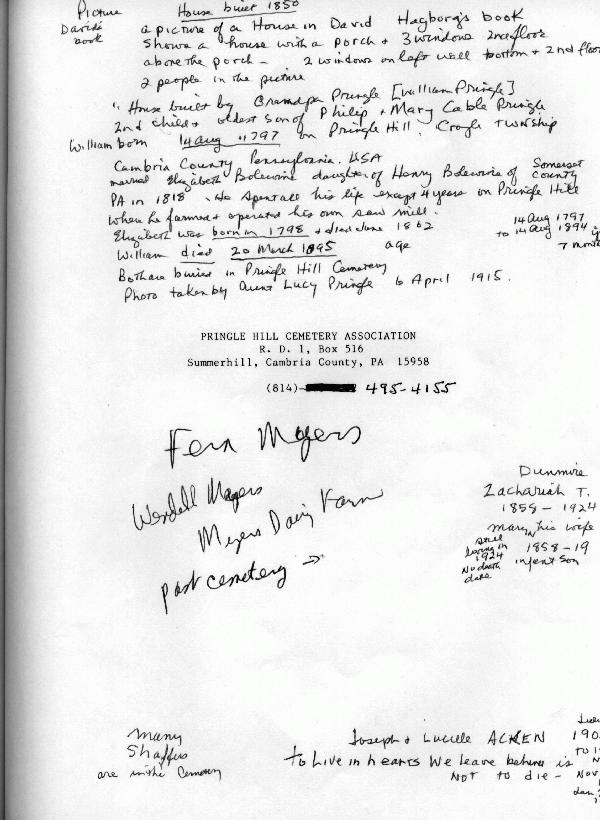 Picture House built 1850
David's book
a picture of a House in David Hagborg's book
shows a house with a porch + 3 windows 2nd floor
above the porch - 2 windows on left wall bottom + 2nd floor
2 people in the picture
" House built by Grandpa Pringle [William Pringle]
2nd child + oldest son of Philip + Mary Cable Pringle
William born 14 Aug 1797 on Pringle Hill. Croyle Township
Cambria County Pennsylvania. USA
married Elizabeth daughter of Henry of Somerset County
PA in 1818. He spent all his life except 4 years on Pringle Hill
where he farmed + operated his own saw mill.
Elizabeth was born in 1798 + died June 1862
14 Aug 1797
to 14 Aug 1894
7 month
William died 20 March 1895 age
Both are buried in Pringle Hill Cemetery
Photo taken by Aunt Lucy Pringle 6 April 1915.
PRINGLE HILL CEMETERY ASSOCIATION
R. D. 1, Box 516
Summerhill, Cambria County, PA 15958
(814)- 495-4155
Fern Myers
Wendell Myers
Myers Dairy Farm
past cemetery →
Dunmire
Zachariah T.
1859 - 1924
Mary his wife
still living in 1924
No death date
1858-19
infant son
many
Shaffers
are in the Cemetery
Joseph + Lucille ACKEN
to Live in hearts We leave behind is
NOT to die -
190
to 1
Nov